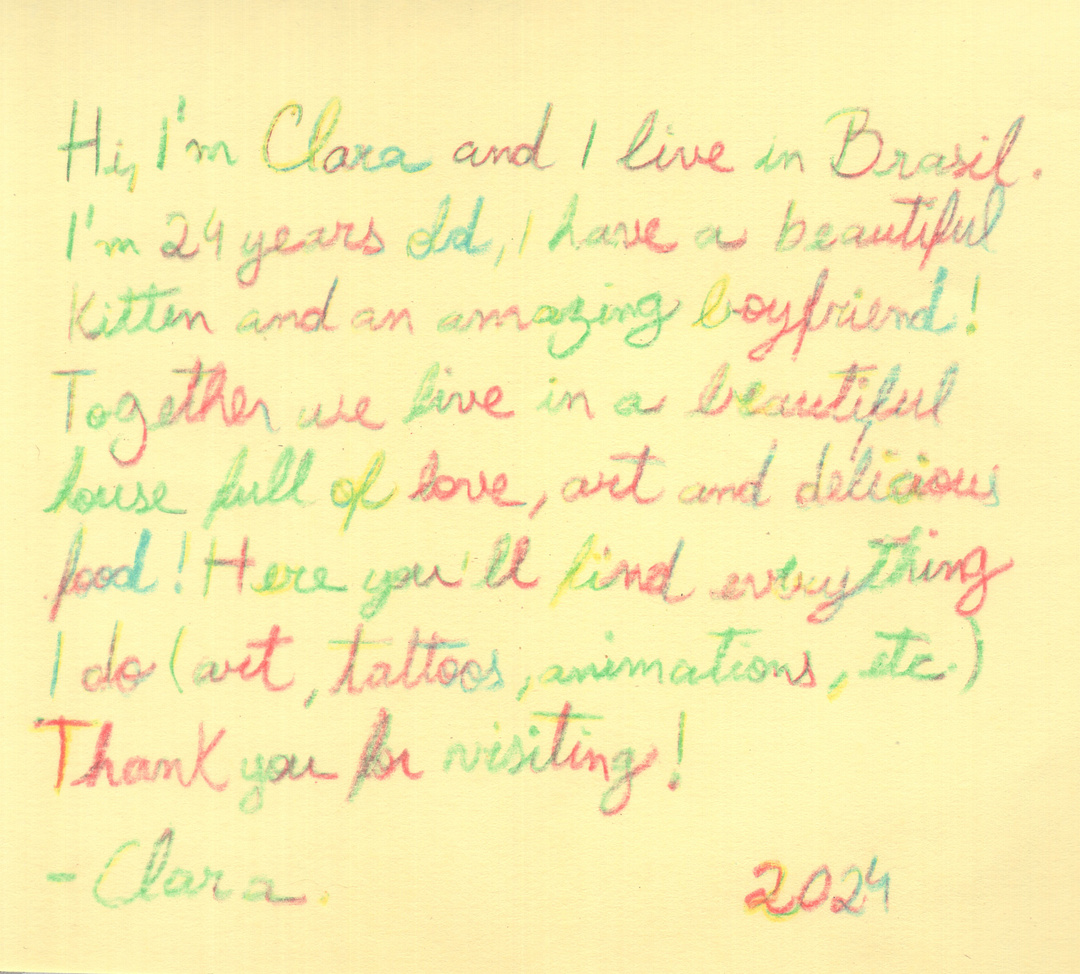 Hi, I'm Clara and I live in Brasil.
I'm 24 years old, I have a beautiful
Kitten and an amazing boyfriend!
Together we live in a beautiful
house full of love, art and delicious
food! Here you'll find everything
I do (art, tattoos, animations, etc.)
Thank you for visiting!
- Clara.
2024